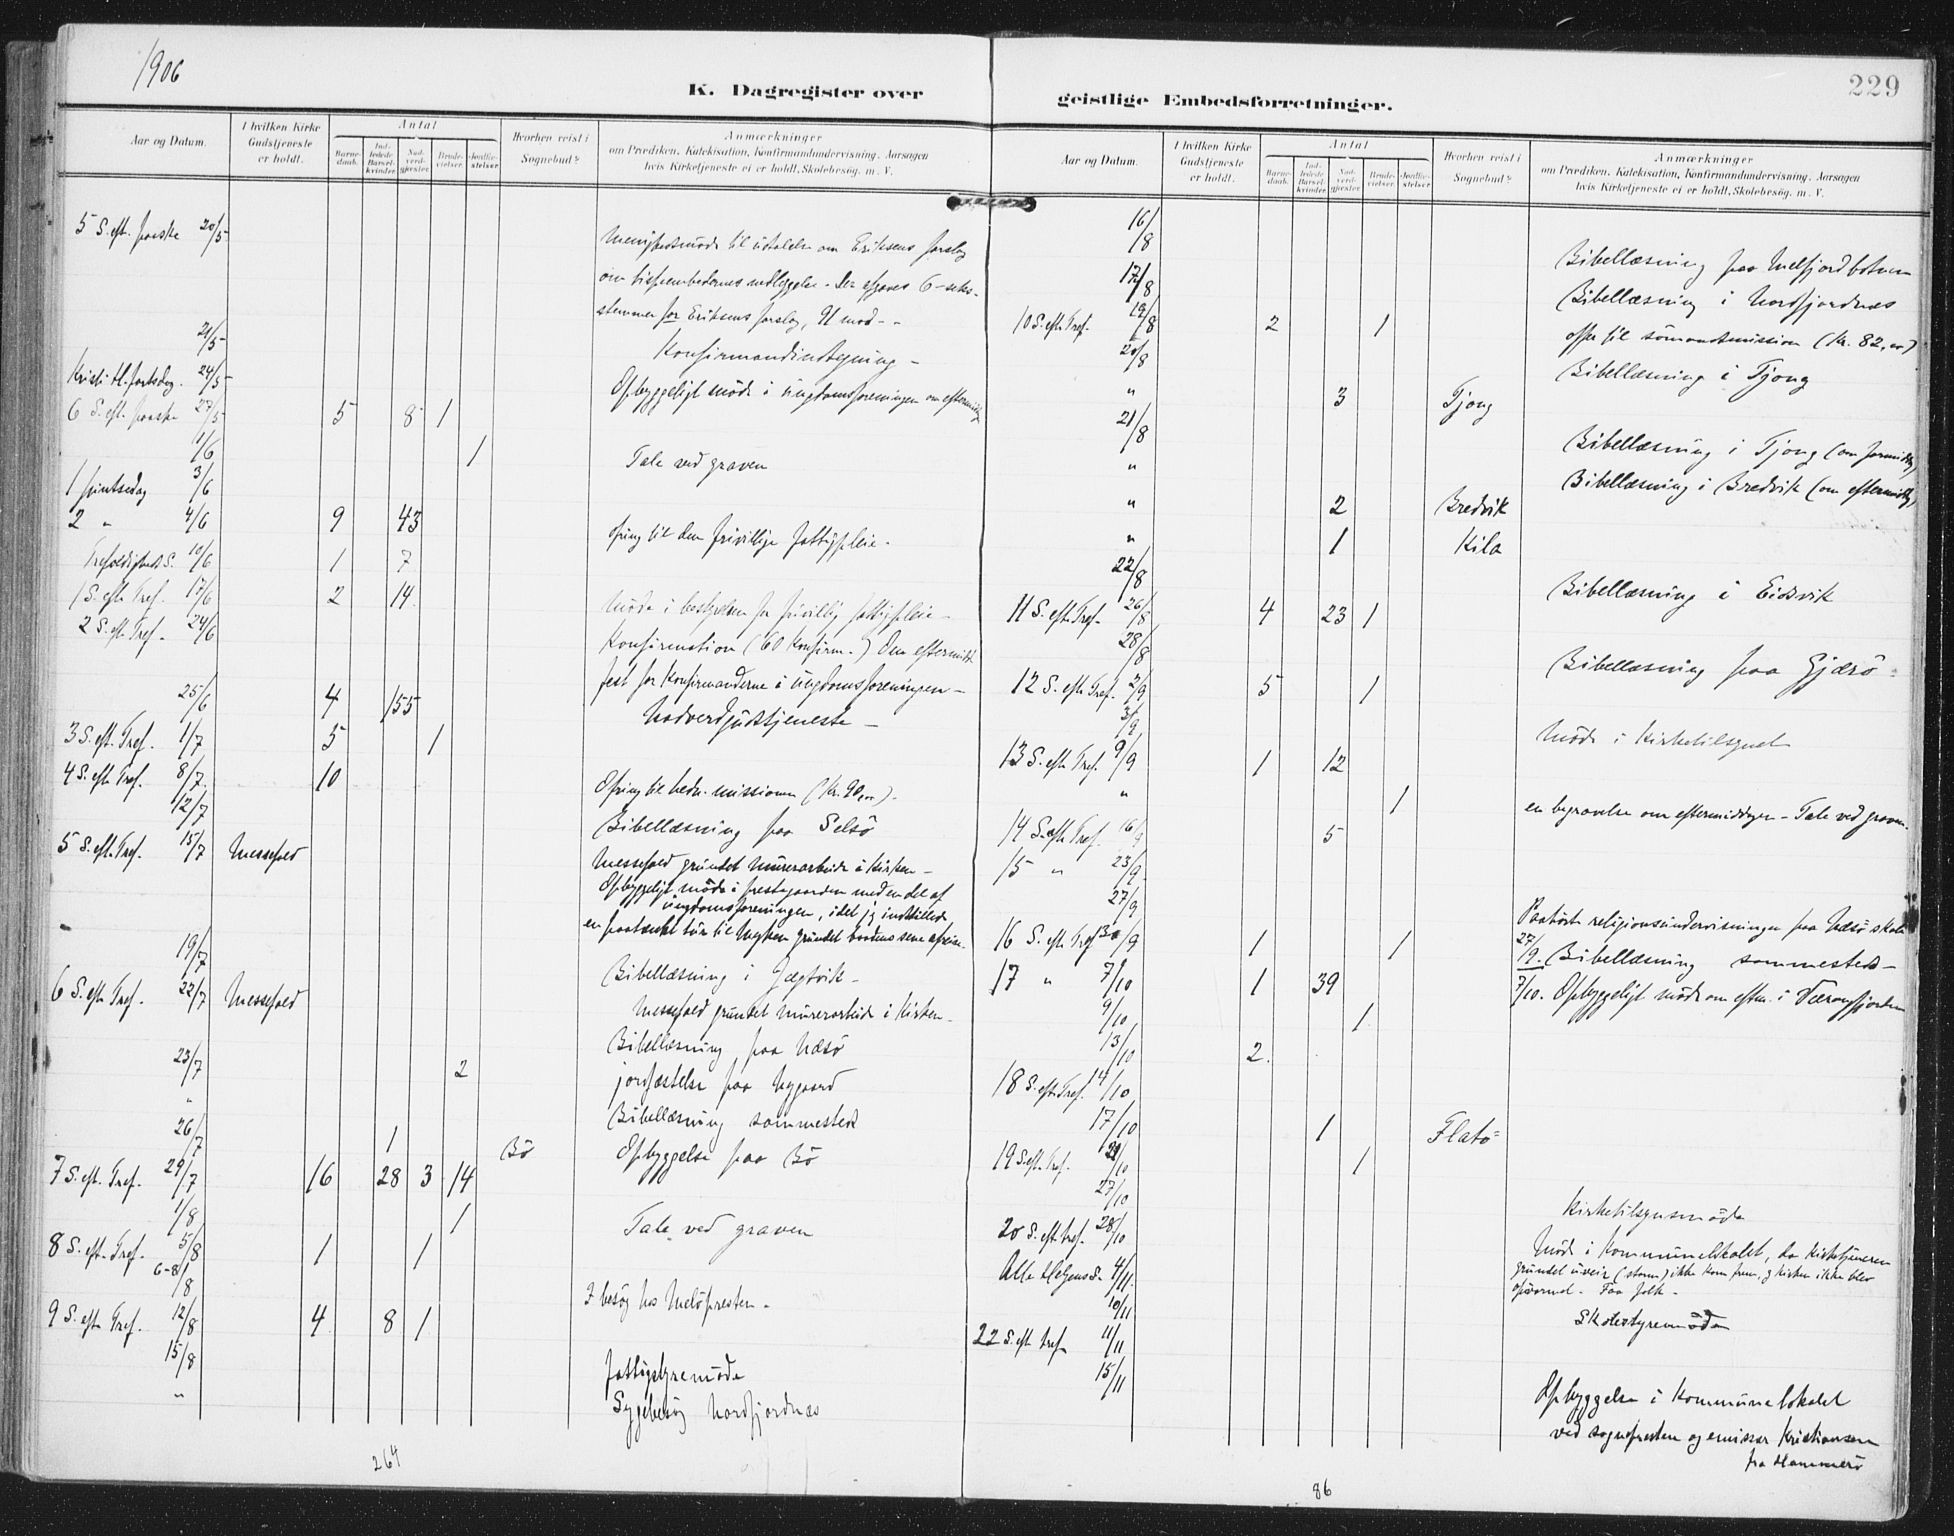 1906
K. Dagregister over
Aar og Datum.
I hvilken Kirke Gudstjeneste er holdt.
Antal
Barne-daab.
Ind-ledede Barsel-kvinder.
Nad-verd-gjester.
Brude-vielser.
Jordfæ-stelser
Hvorhen reist i Sognebud?
Anmærkninger
om Prædiken, Katekisation, Konfirmandundervisning. Aarsagen
hvis Kirketjeneste ei er holdt, Skolebesøg. m. V.
5 S. eft. paaske 20/5 Menighedsmøde til udtalelse om Eriksens forslag
om bispeembedernes nedlæggelse. Der afgaves 6 - seks -
stemmer for Eriksens forslag, 91 mod -
21/5 Konfirmandindtegning -
Kristi H. fartsdag. 24/5 Opbyggeligt møde i ungdomsforeningen om eftermiddag
6 S. eft. paaske 27/5 5 8 1
1/6 1 Tale ved graven
1 pintsedag 3/6
2 " 4/6 9 43 Ofring til den frivillige fattigpleie.
Trefoldigheds S. 10/6 1 7
1 S. eft. Tref. 17/6 2 14 Møde i bestyrelsen for frivillig fattigpleie -
2 S. eft. Tref. 24/6 Konfirmation (60 Konfirm.) Om eftermidd.
fest for Konfirmanderne i ungdomsforeningen -
25/6 4 155 Nadverdgudstjeneste -
3 S. eft. Tref. 1/7 5 1
4 S. eft. Tref. 8/7 10 Ofring til hedn. missionen (Kr. 90,00).
12/7 Bibellæsning paa Selsö
5 S. eft. Tref. 15/7 Messefald Messefald grundet murerarbeide i Kirken -
Opbyggeligt møde i prestegaarden med en del af
ungdomsforeningen, idet jeg indstillede
en paatænkt tur til Myken grundet baadens sene afreise.
19/7 Bibellæsning i Jægtvik -
6 S. eft. Tref. 22/7 Messefald Messefald grundet murerarbeide i Kirken -
Bibellæsning paa Næsö
23/7 2 jordfæstelse paa Nygaard
" Bibellæsning sammesteds
26/7 1 Bö Opbyggelse paa Bö
7 S. eft. Tref. 29/7 16 28 3 14
1/8 1 Tale ved graven
8 S. eft. Tref. 5/8 1 1
6-8/8 I besøg hos Melöpresten.
9 S. eft. Tref. 12/8 4 8 1
15/8 Fattigstyremöde
" Sygebesøg Nordfjordnæs
264
229
geistlige Embedsforretninger.
Aar og Datum.
I hvilken Kirke Gudstjeneste er holdt.
Antal
Barne-daab.
Ind-ledede Barsel-kvinder.
Nad-verd-gjester
Brude-vielser.
Jordfæ-stelser
Hvorhen reist i Sognebud?
Anmærkninger
om Prædiken, Katekisation, Konfirmandundervisning. Aarsagen
hvis Kirketjeneste ei er holdt, Skolebesøg. m. V.
16/8 Bibellæsning paa Melfjordbotnen
17/8 Bibellæsning i Nordfjordnæs
10 S. eft. Tref. 19/8 2 1 offer til sömandsmission (Kr. 82,00)
20/8 Bibellæsning i Tjong
" 3 Tjong
21/8 Bibellæsning i Tjong (om formidd)
" Bibellæsning i Bredvik (om eftermidd)
" 2 Bredvik
" 1 Kila
22/8 Bibellæsning i Eidsvik
11 S. eft. Tref. 26/8 4 23 1
28/8 Bibellæsning paa Gjærö
12 S. eft. Tref. 2/9 5 1
3/9 Møde i Kirketilsynet
13 S. eft. Tref. 9/9 1 12
" 1 en begravelse om eftermiddagen - Tale ved graven.
14 S. eft. Tref. 16/9 5
15 " 23/9
27/9 Paahörte religionsundervisningen paa Næsö skole
16 S. eft. Tref. 30/9 1 1 27/9. Bibellæsning sammesteds -
17 " 7/10 1 39 7/10. Opbyggeligt møde om efterm. i Værangfjorden
9/10 1
13/10 2
18 S. eft. Tref. 14/10
17/10 1 Flatö
19 S. eft. Tref. 21/10 1
27/10 Kirketilsynsmöde
20 S. eft. tref. 28/10 Møde i Kommunelokalet, da Kirketjeneren
grundet uveir (storm) ikke kom frem, og kirken ikke blev
opvarmet. Faa folk.
Alle Helgens S. 4/11
10/11 Skolestyremöde
22 S. eft. tref. 11/11
15/11 Opbyggelse i Kommunelokalet
ved sognepresten og emissær Kristiansen
fra Hammerö
86